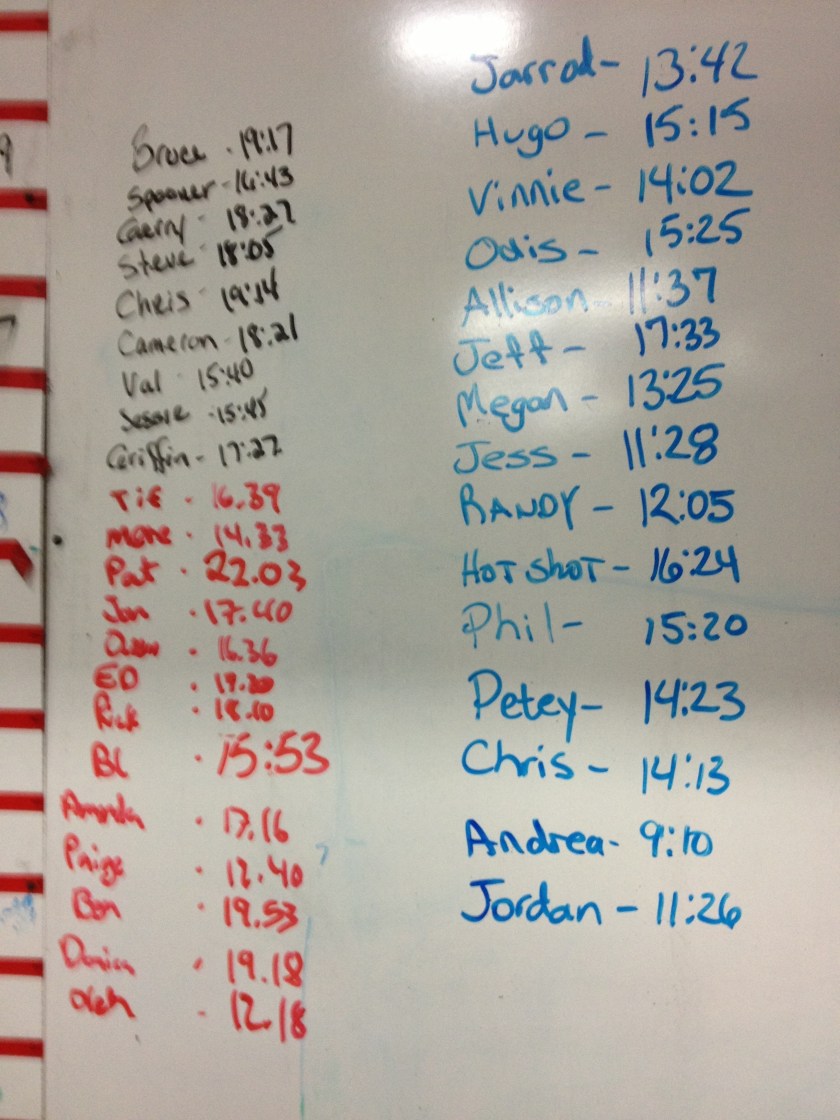 Bruce - 19:17
Spooner - 16:43
Gerry - 18:27
Steve - 18:05
Chris - 19:14
Cameron - 18:21
Val - 15:40
15:45
Griffin - 17:27
16.39
14.33
Pat - 22.03
Jon - 17.40
16.36
ED - 19.20
Rick - 18.10
BL - 15:53
Amanda - 17.16
Paige - 12.40
Ben - 19.53
19.18
12.18
Jarrod - 13:42
Hugo - 15:15
Vinnie - 14:02
Odis - 15:25
Allison - 11:37
Jeff - 17:33
Megan - 13:25
Jess - 11:28
RANDY - 12:05
HOT SHOT - 16:24
Phil - 15:20
Petey - 14:23
Chris - 14:13
Andrea - 9:10
Jordan - 11:26